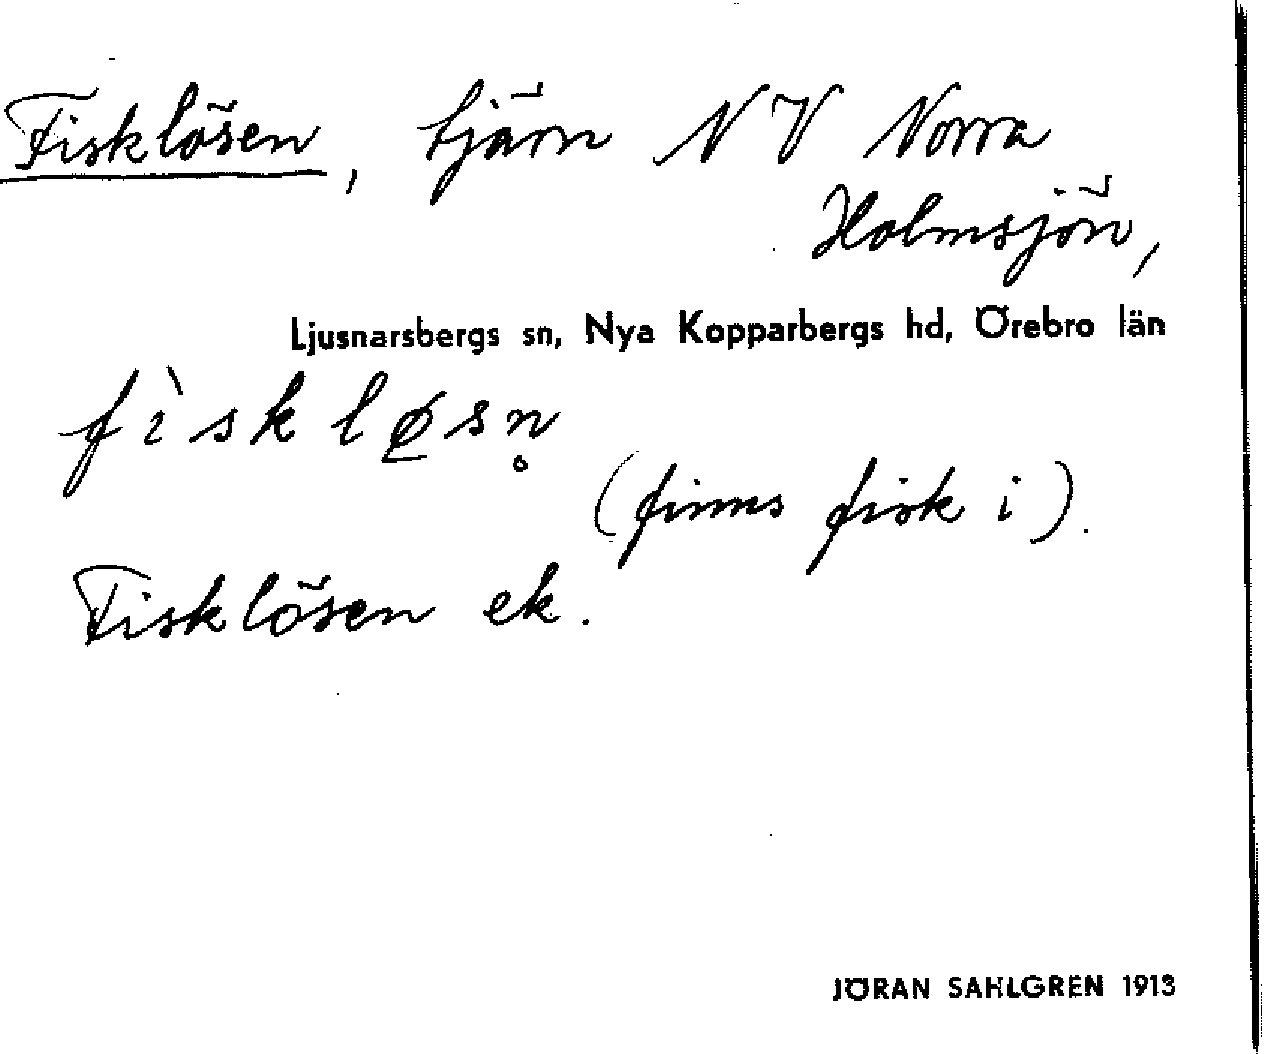 Fisklösen, tjärn NV Norra
Holmsjön,
Ljusnarsbergs sn, Nya Kopparbergs hd, Örebro län
fìsklø̱sn̥
(finns fisk i).
Fisklösen ek.
JÖRAN SAHLGREN 1913